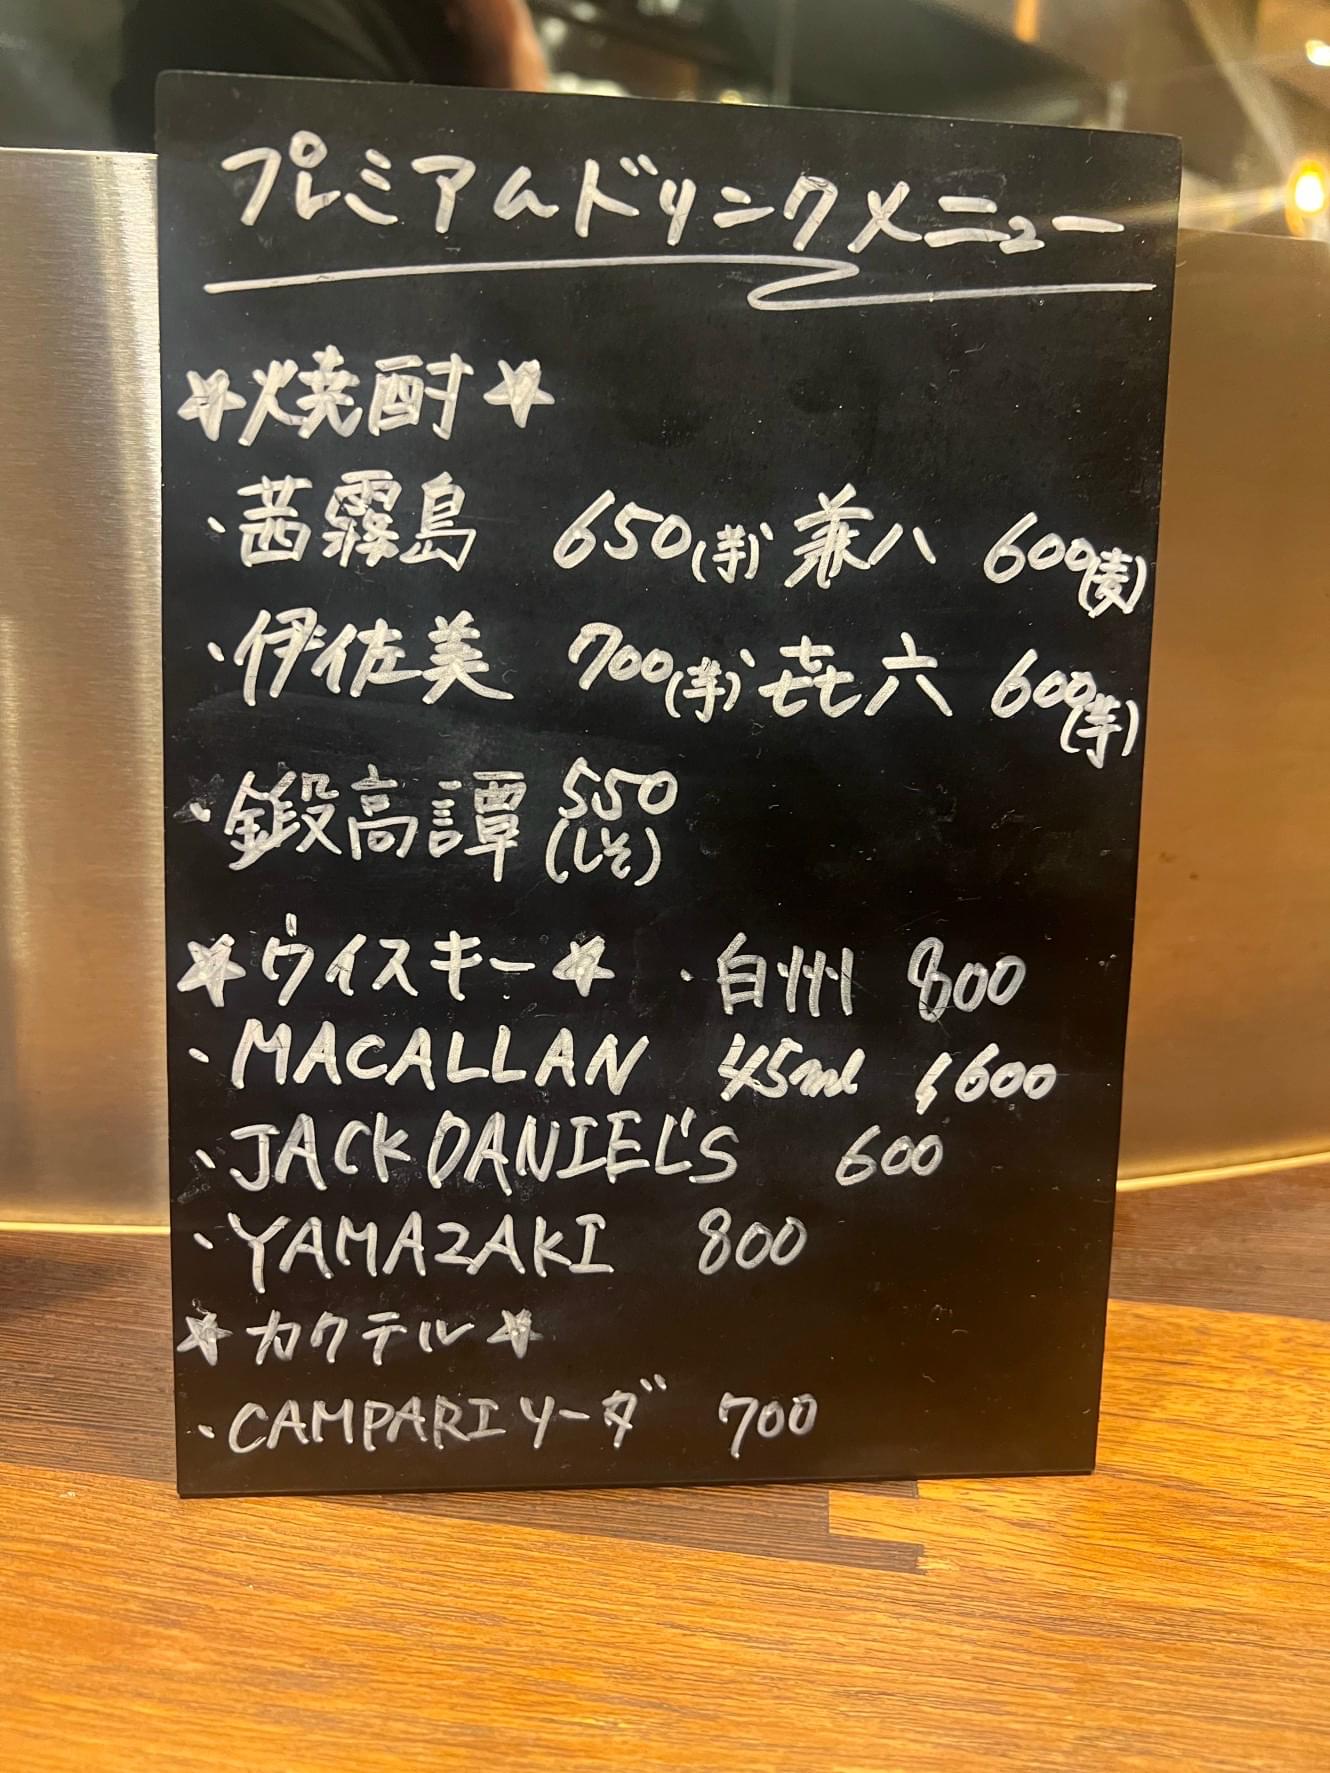 プレミアムドリンクメニュー
☆焼酎☆
・茜霧島 650(芋)・兼八 600(麦)
・伊佐美 700(芋)・㐂六 600(芋)
・鍛高譚 550
(しそ)
☆ウイスキー☆ ・白州 800
・MACALLAN 45ml 600
・JACK DANIEL'S 600
・YAMAZAKI 800
☆カクテル☆
・CAMPARIソーダ 700